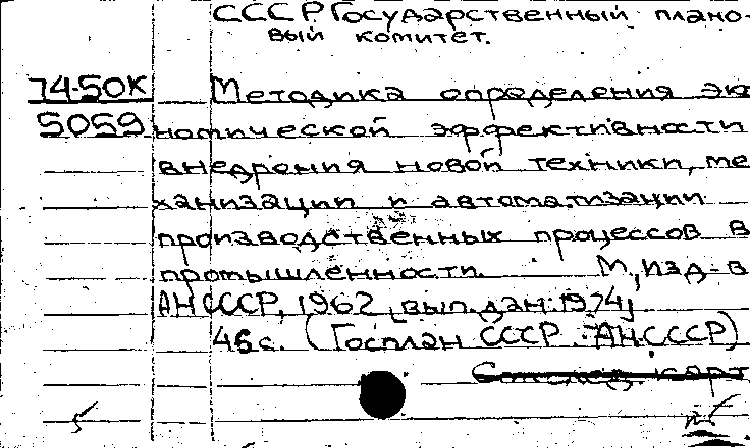 СССР. Государственный плано-
вый комитет.
74-50К Методика определения эко
5059 номической эффективности
внедрения новой техники, ме
ханизации и автоматизации
производственных процессов в
промышленности. М, изд-в
АН СССР, 1962 [вып. дан. 1974]
46 с. (Госплан СССР. АН СССР)